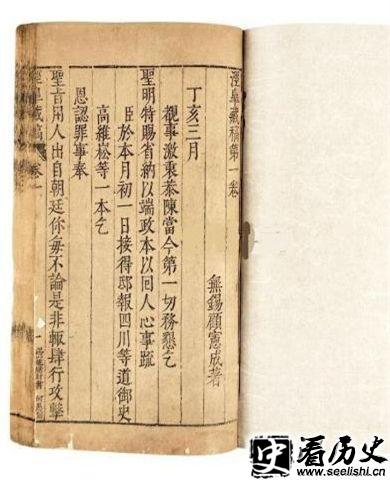 涇皐藏稿第一卷
無錫顧憲成著
丁亥三月
覩事激衷恭陳當今第一切務懇乞
聖明特賜省納以端政本以回人心事疏
臣於本月初一日接得邸報四川等道御史
高維崧等一本乞
恩認罪事奉
聖旨用人出自朝廷你每不論是非輒肆行攻擊
涇皐藏稿
卷一
一
史看历史
www.seelishi.cn